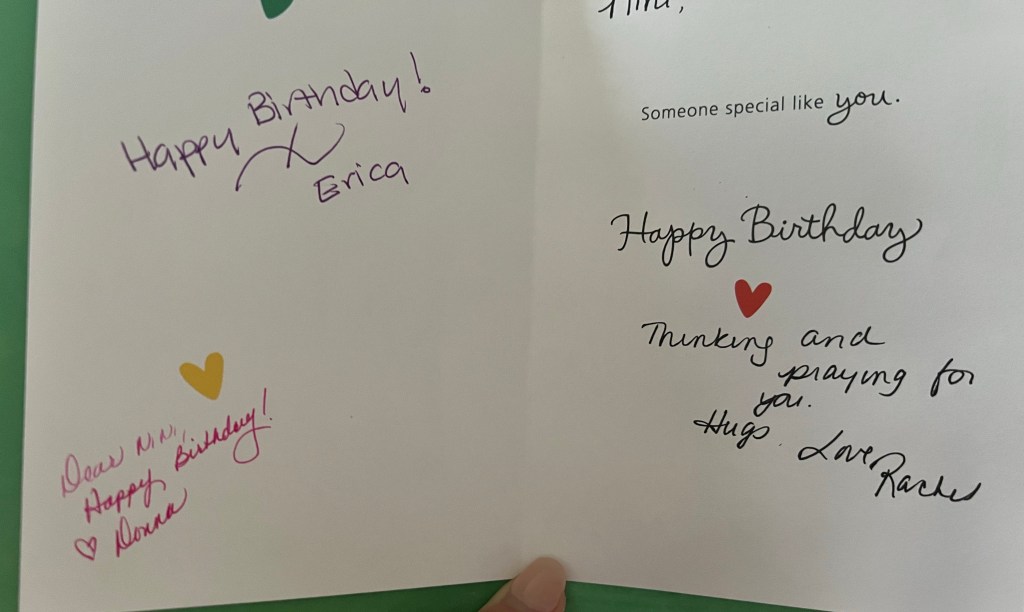 Happy Birthday!
Erica
Dear NiNi,
Happy Birthday!
Donna
Someone special like you.
Happy Birthday
Thinking and
praying for
you.
Hugs. Love,
Rachel